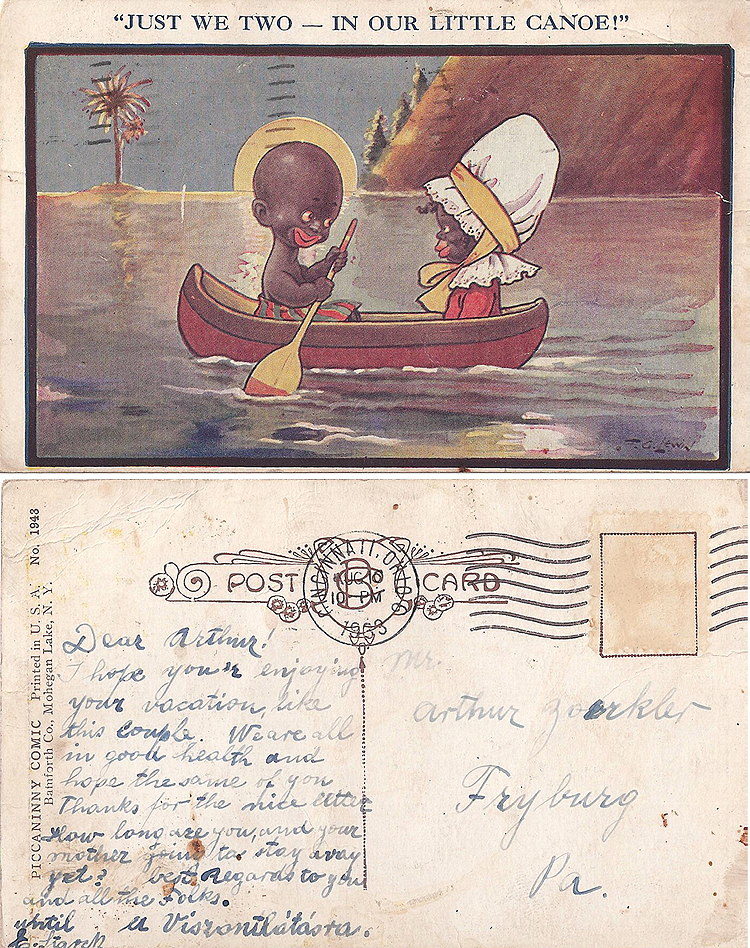 “JUST WE TWO — IN OUR LITTLE CANOE!”
F. G. LEWIN
PICCANINNY COMIC Printed in U. S. A. No. 1943
Bamforth Co., Mohegan Lake, N. Y.
POST CARD
CINCINNATI, OHIO
AUG 10
10 PM
1953
B
Dear Arthur!
I hope you'r enjoying
your vacation, like
this couple. We are all
in good health and
hope the same of you
Thanks for the nice letter
How long are you, and your
mother going to stay away
yet? best Regards to you
and all the Folks.
until a Viszontlátásra.
Mr.
Arthur
Fryburg
Pa.